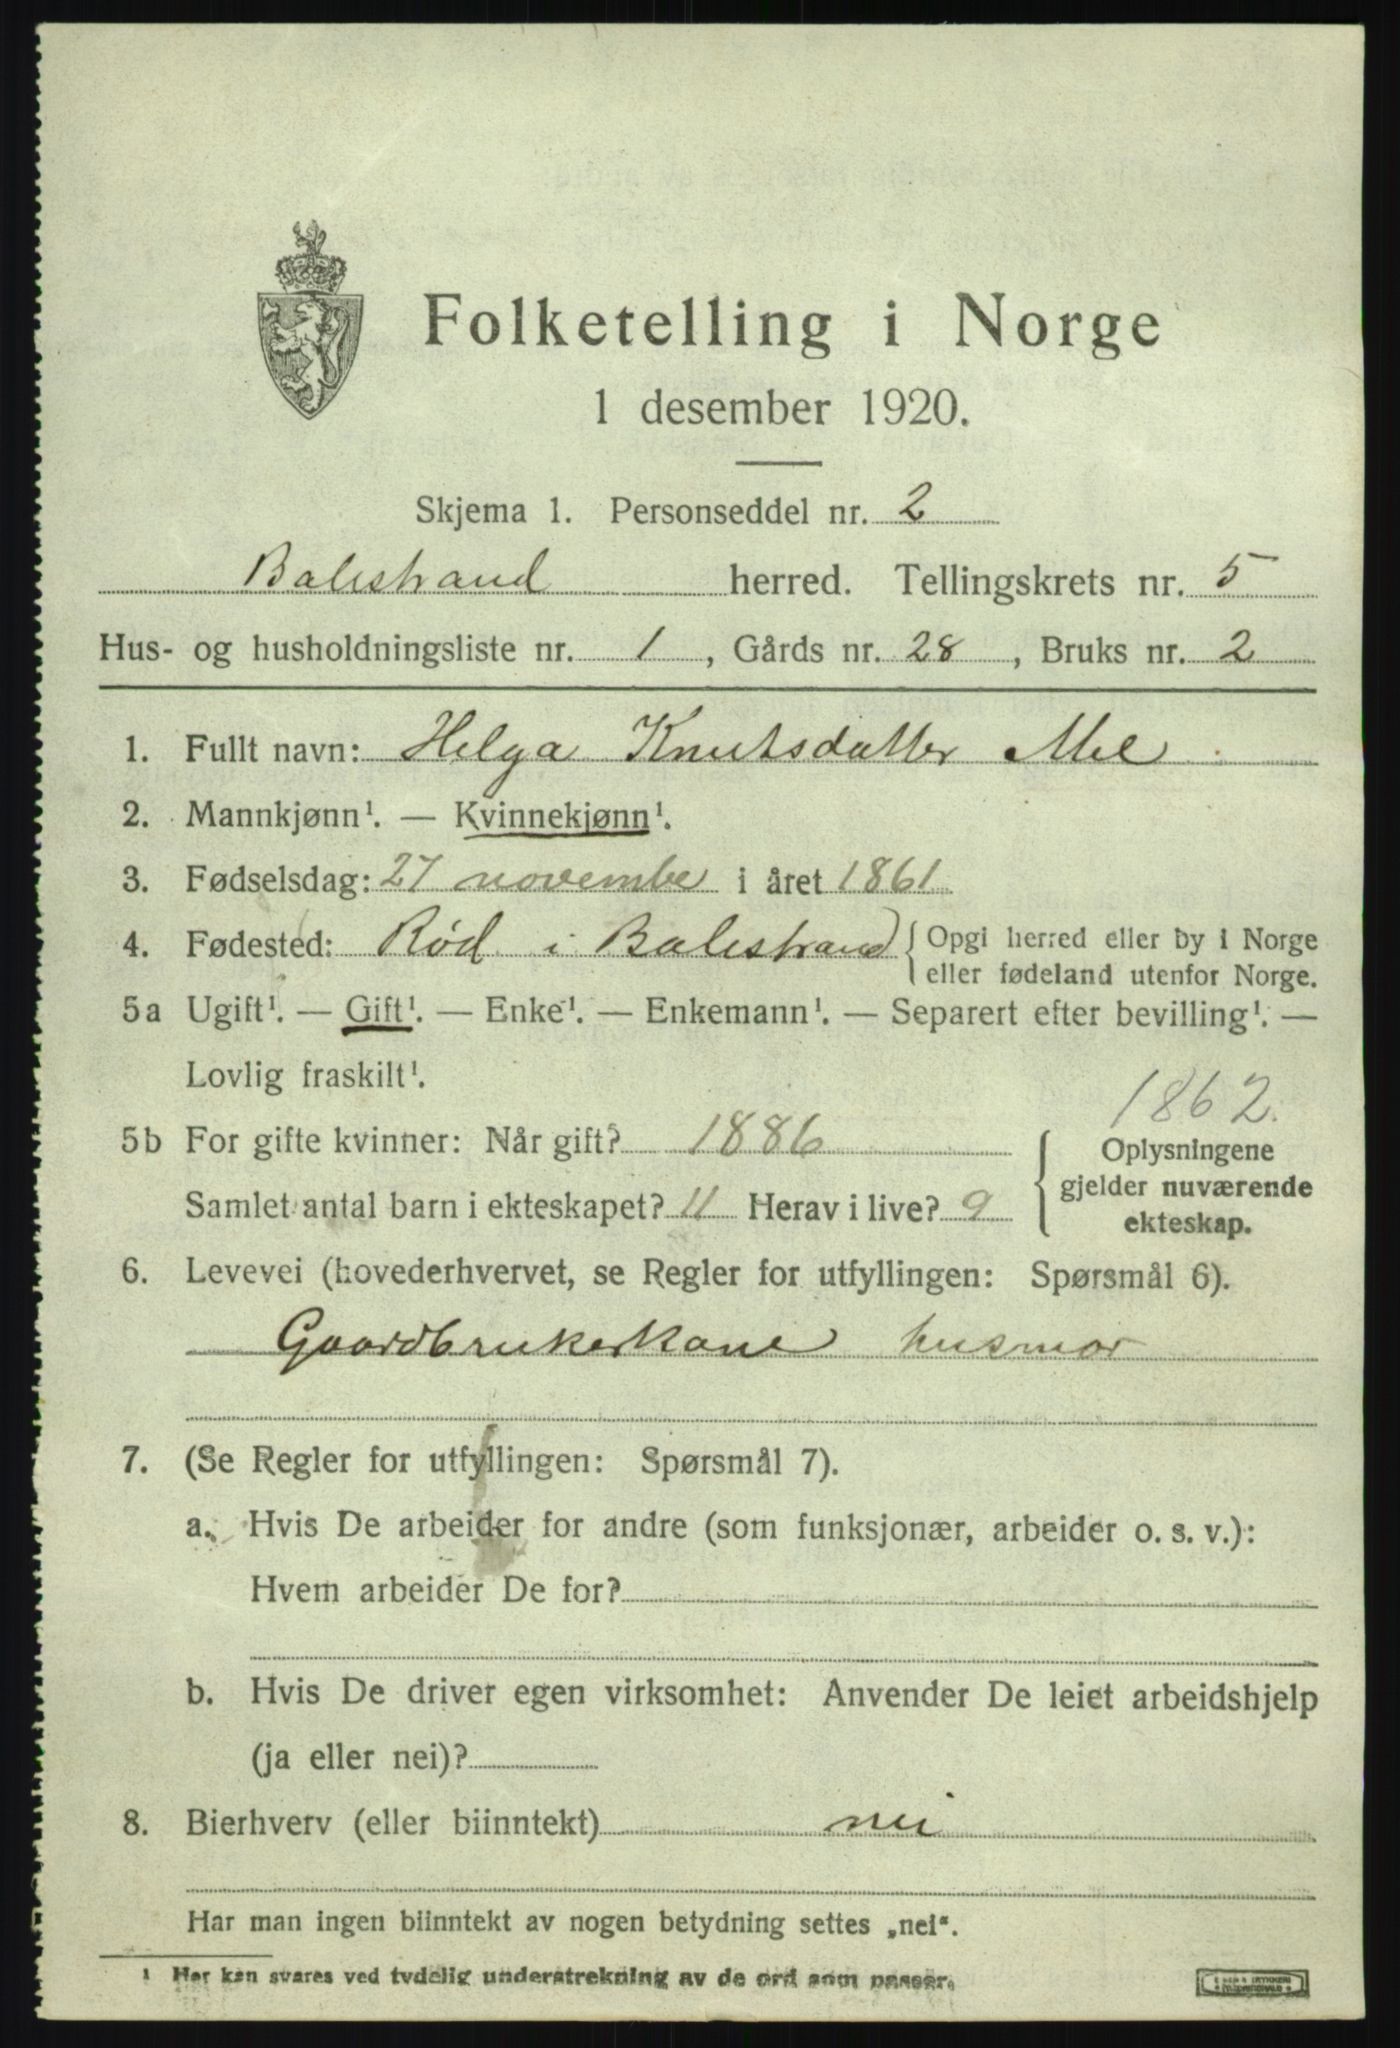 Folketelling i Norge
1 desember 1920.
Skjema 1. Personseddel nr. 2
Balestrand herred. Tellingskrets nr. 5
Hus- og husholdningsliste nr. 1, Gårds nr. 28, Bruks nr. 2
1. Fullt navn: Helga Knutsdatter Mel
2. Mannkjønn¹. — Kvinnekjønn¹.
3. Fødselsdag: 27 novembe i året 1861
4. Fødested: Rød i Balestrand { Opgi herred eller by i Norge
eller fødeland utenfor Norge.
5a Ugift¹. — Gift¹. — Enke¹. — Enkemann¹. — Separert efter bevilling¹. —
Lovlig fraskilt¹.
1862.
5b For gifte kvinner: Når gift? 1886
Samlet antal barn i ekteskapet? 11 Herav i live? 9
{ Oplysningene
gjelder nuværende
ekteskap.
6. Levevei (hovederhvervet, se Regler for utfyllingen: Spørsmål 6).
Gaardbrukerkone husmor
7. (Se Regler for utfyllingen: Spørsmål 7).
a. Hvis De arbeider for andre (som funksjonær, arbeider o. s. v.):
Hvem arbeider De for?
b. Hvis De driver egen virksomhet: Anvender De leiet arbeidshjelp
(ja eller nei)?
8. Bierhverv (eller biinntekt) nei
Har man ingen biinntekt av nogen betydning settes „nei“.
¹ Her kan svares ved tydelig understrekning av de ord som passer.